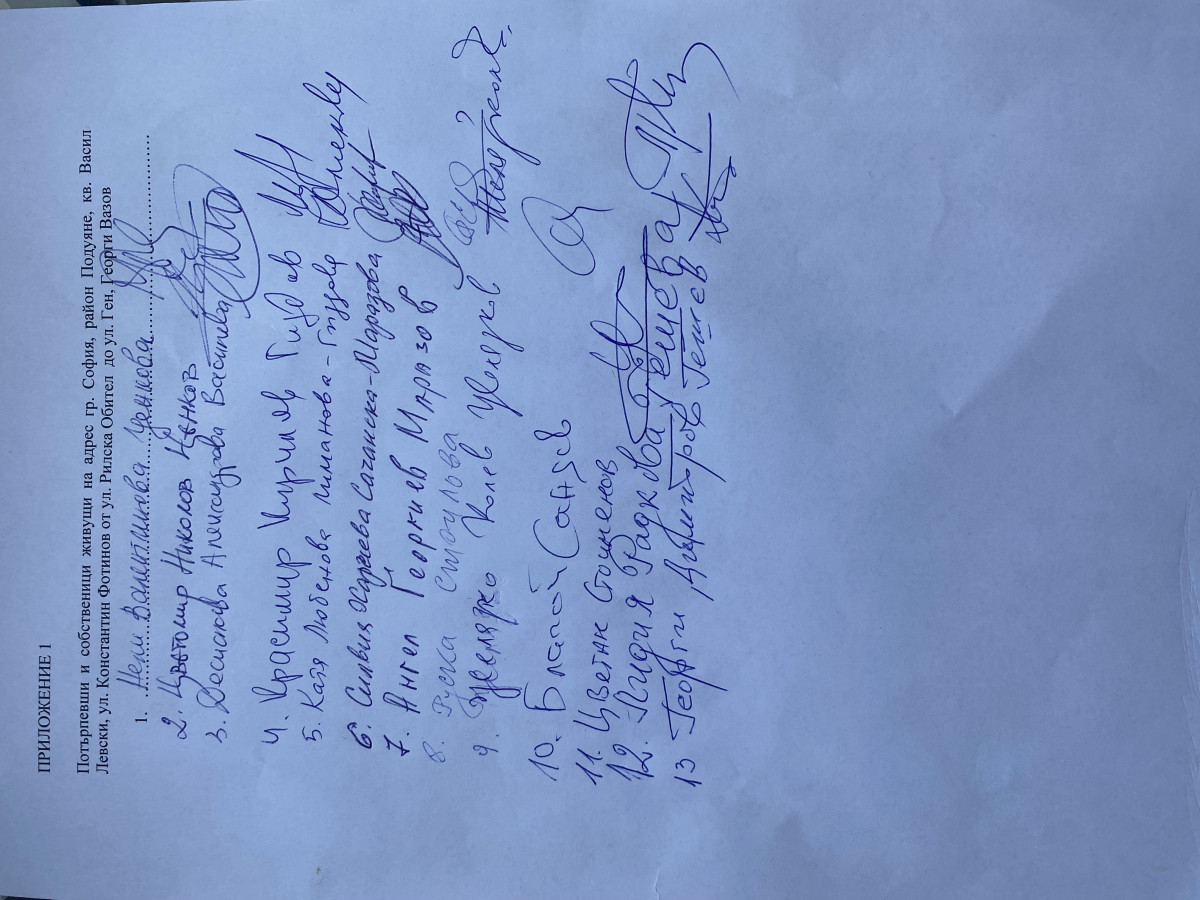 ПРИЛОЖЕНИЕ 1
Потърпевши и собственици живущи на адрес гр. София, район Подуяне, кв. Васил
Левски, ул. Константин Фотинов от ул. Рилска Обител до ул. Ген, Георги Вазов
1. Нели Валентинова Ценкова
2. Цветомир Николов Ценков
3. Десислава Александрова Василева
4. Красимир Кирилов Гидов
5. Катя Любенова
6. Силвия Саганска-Маразова
7. Ангел Георгиев Маразов
8. Руска
9. Желязко Колев Желязков
10. Благой
11. Цветан Стоименов
12. Лидия Радкова Гешева
13 Георги Димитров Гешев